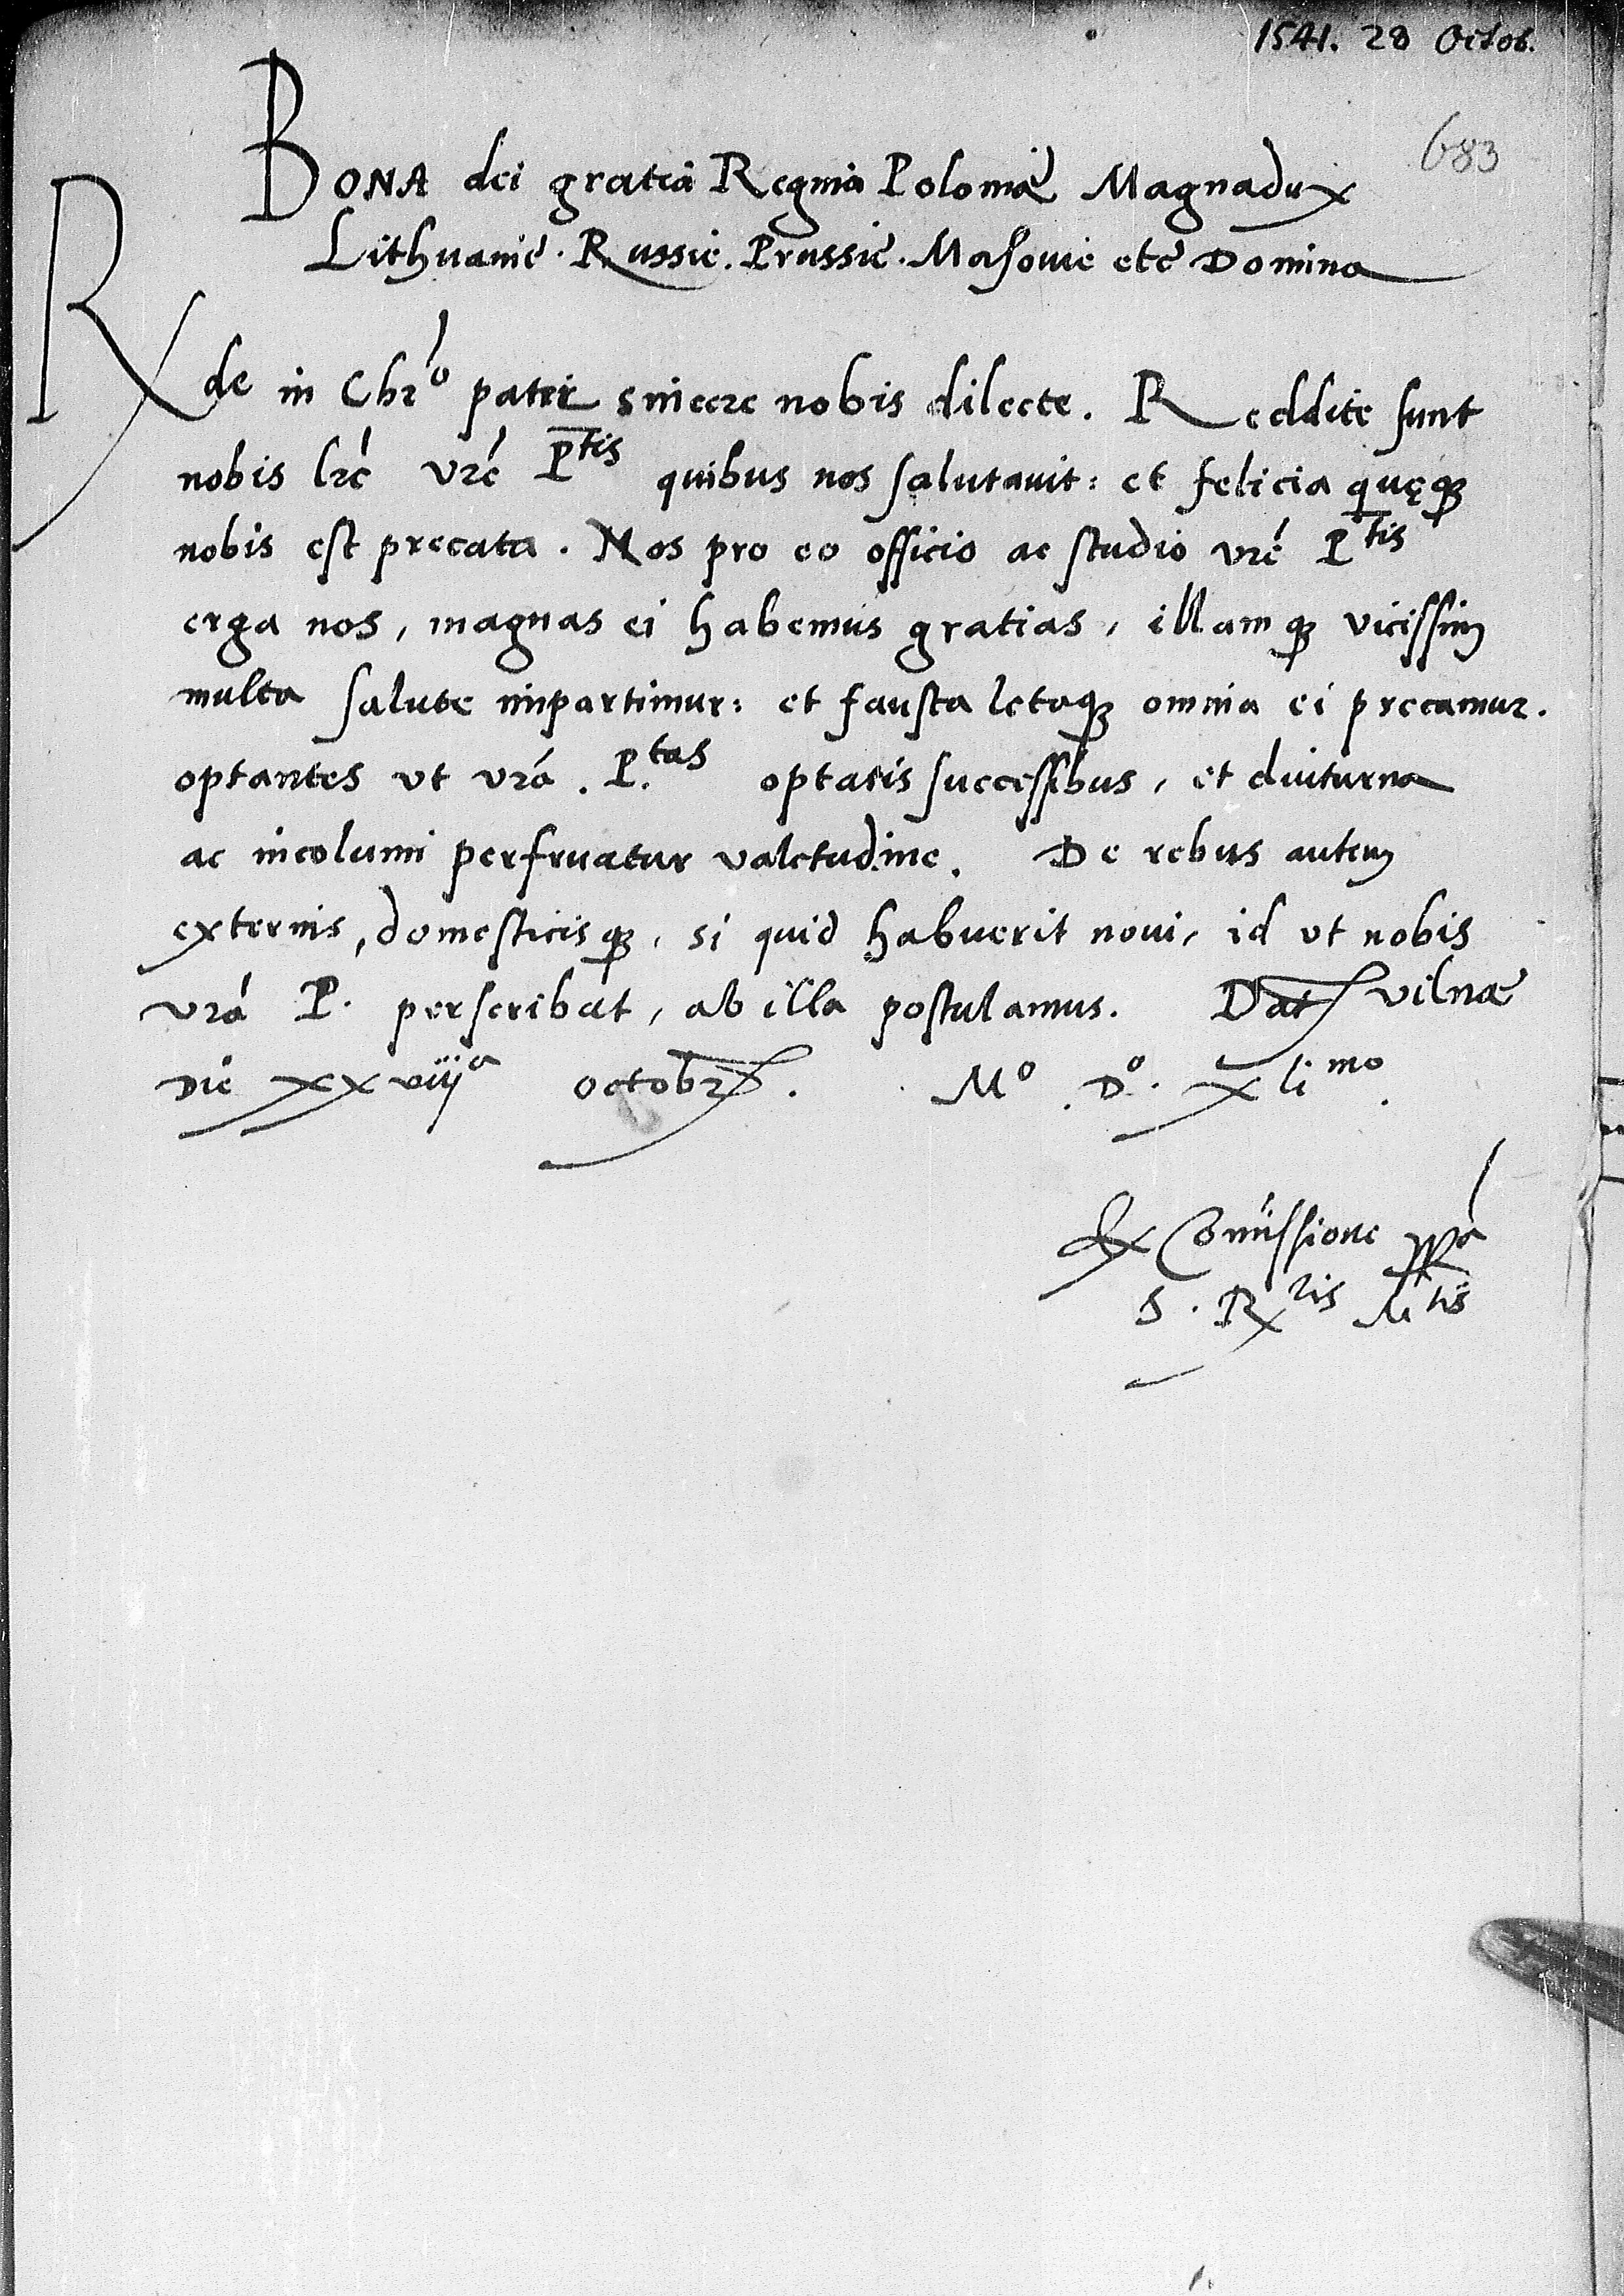 1541. 28 Octob.
683
BONA dei gratia Regina Poloniae Magnadux
Lithuanie. Russie. Prussie. Masovie etc Domina
Rde in Chro pater sincere nobis dilecte. Reddite sunt
nobis lre vre Ptis quibus nos salutavit: et felicia quęque
nobis est precata. Nos pro eo officio ac studio vre Ptis
erga nos, magnas ei habemus gratias, illamque vicissim
multa salute impartimur: et fausta letaque omnia ei precamur.
optantes ut vra. P.tas optatis successibus, et diuturna
ac incolumi perfruatur valetudine. De rebus autem
externis, domesticisque, si quid habuerit novi, id ut nobis
vra P. perscribat, ab illa postulamus. Dat Vilnae
Die xxviija octobr. Mo. Do. xlimo.
Ex Comissione ppa
S. Rlis Mtis